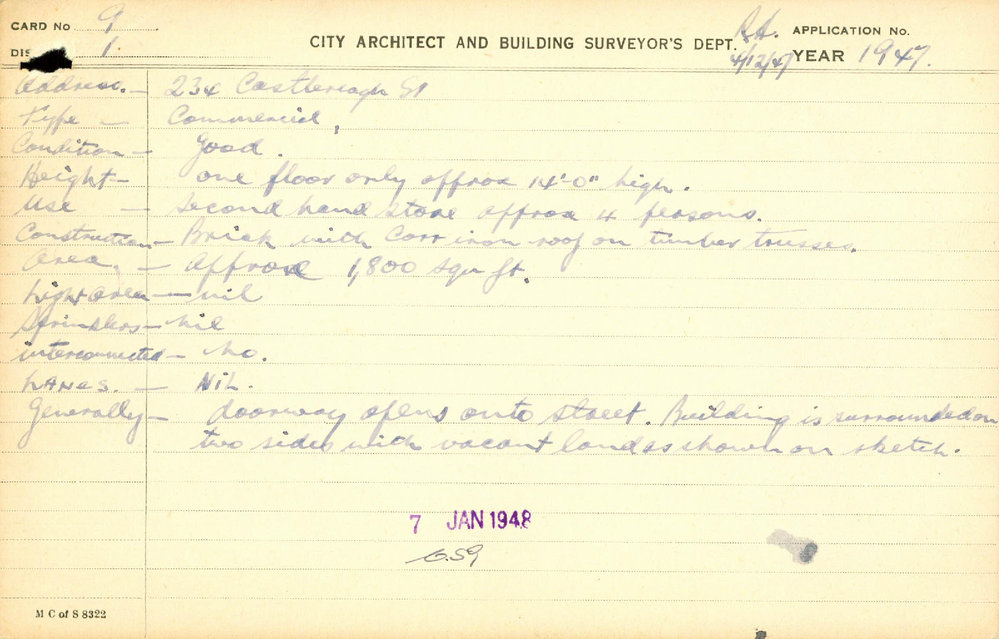 CARD No 9
DIS 1
CITY ARCHITECT AND BUILDING SURVEYOR'S DEPT.
4/12/47
APPLICATION No.
YEAR 1947.
Address. - 234 Castlereagh St
Type - Commercial,
Condition - Good.
Height - one floor only approx 14'-0" high.
Use - Second hand store approx 4 persons.
Construction - Brick with Corr iron roof on timber trusses.
Area. - approx 1,800 sqr ft.
Light area - nil
Sprinklers - Nil
interconnected - No.
LANES. - NiL.
Generally - doorway opens onto street. Building is surrounded on
two sides with vacant land as shown on sketch.
7 JAN 1948
M C of S 8322